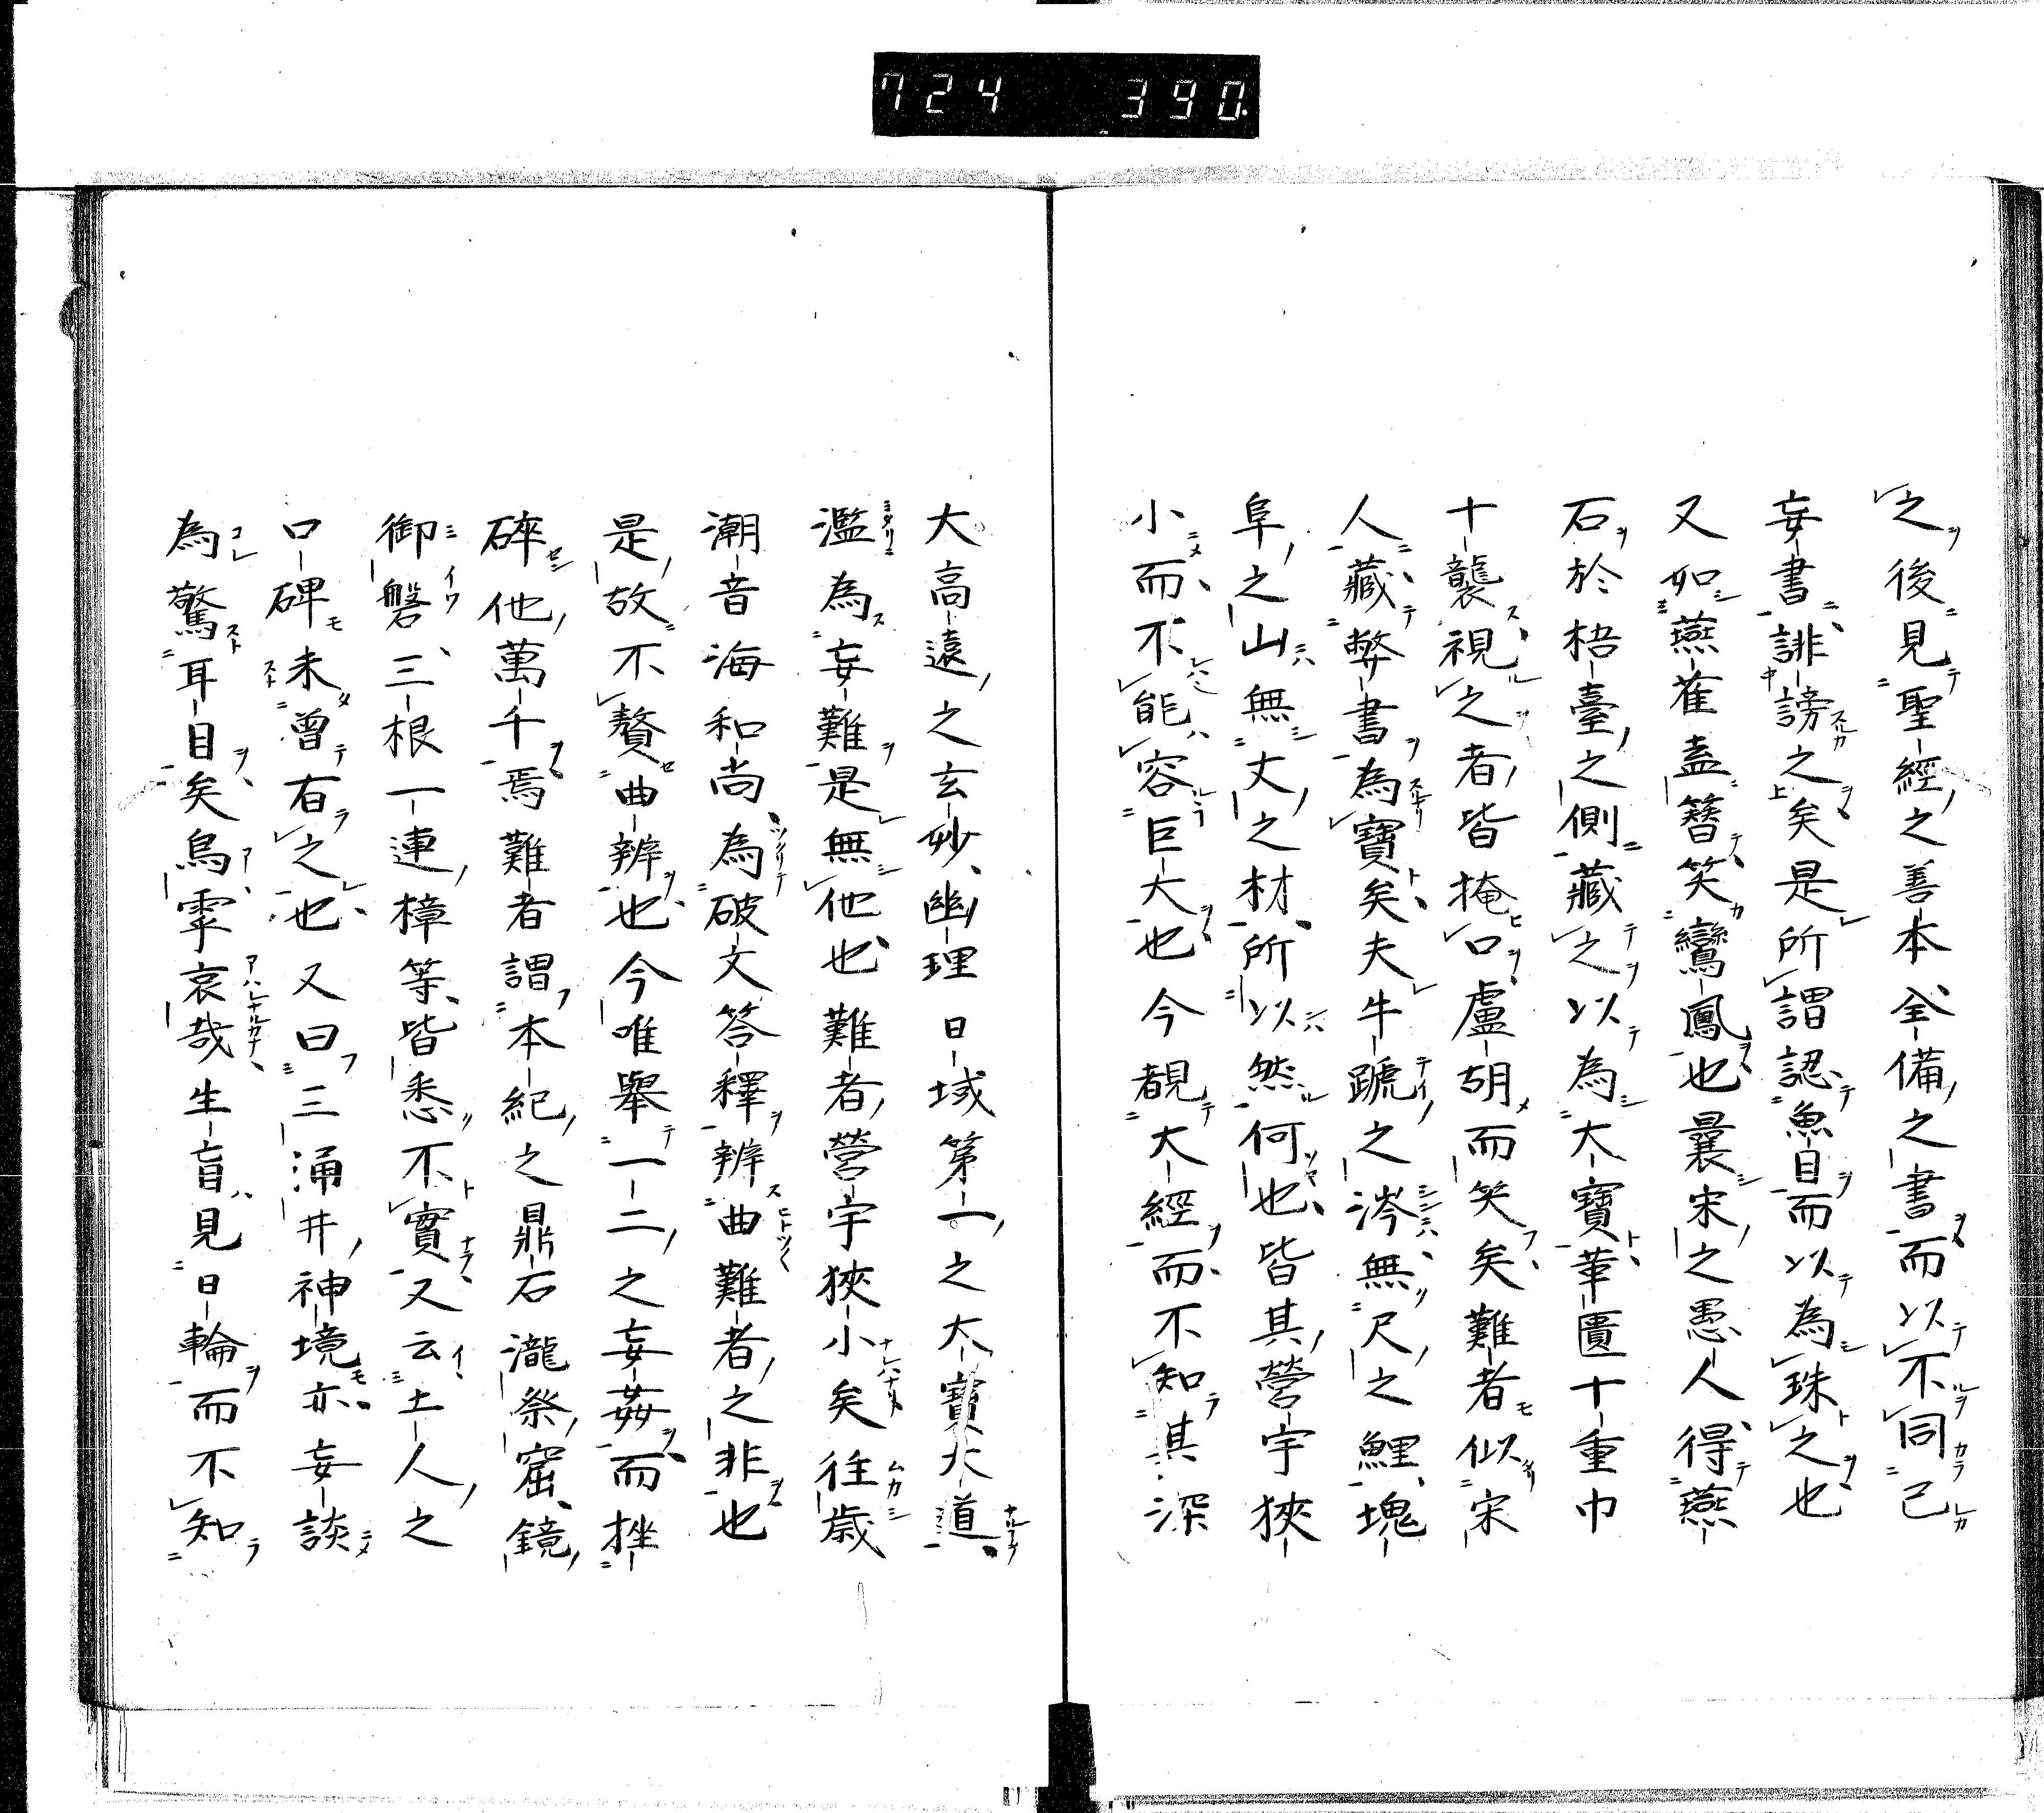 724 390
之後見聖經之善本全備之書而以不同己
妄書誹謗之矣是所謂認魚目而以為珠之也
又如燕雀盍簪笑鸞鳳也曩宋之愚人得燕
石於梧臺之側藏之以為大寶華匱十重巾
十襲視之者皆掩口盧胡而笑矣難者似宋
人藏弊書為寶矣夫牛蹏之涔無尺之鯉塊
阜之山無丈之材所以然何也皆其營宇狹
小而不能容巨大也今覩大經而不知其深
大高遠之玄妙幽理日域第一之大寶大道
濫為妄難是無他也難者營宇狹小矣往歳
潮音海和尚為破文答釋辨曲難者之非也
是故不贅曲辨也今唯舉一二之妄姦而挫
碎他萬千焉難者謂本紀之鼎石瀧祭窟鏡
御磐三根一連樟等皆悉不實又云土人之
口碑未曾有之也又曰三涌井神境亦妄談
為驚耳目矣烏虖哀哉生盲見日輪而不知